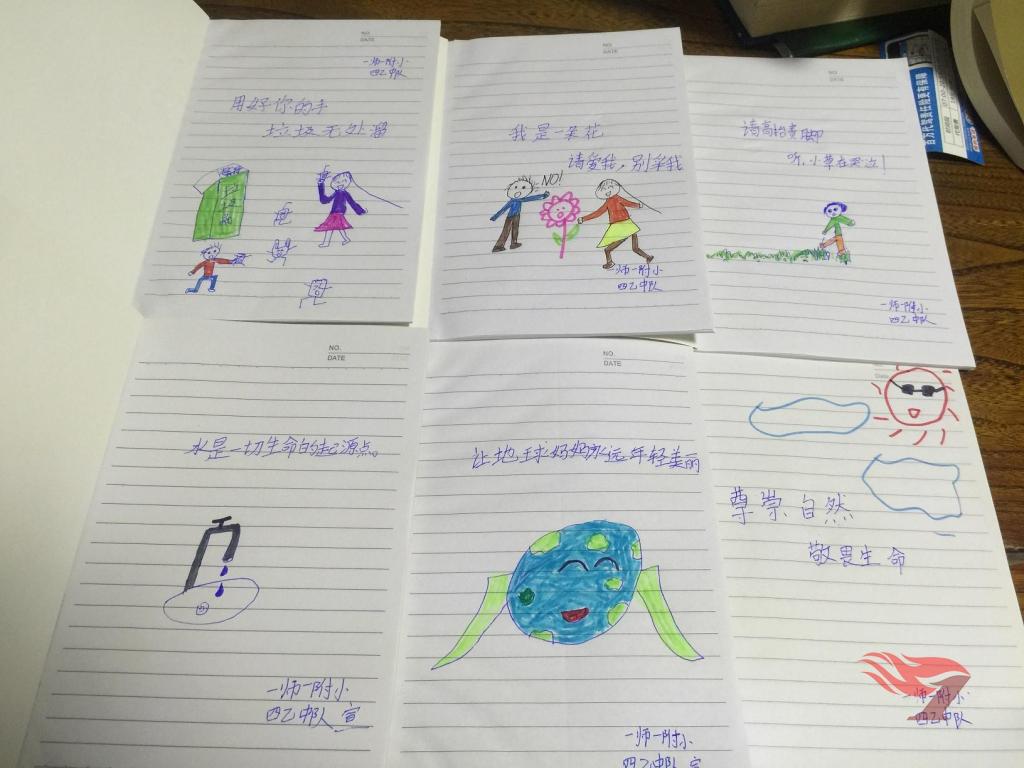 NO.
DATE
一师一附小
四乙中队
用好你的手
垃圾无处溜
NO.
DATE
我是一朵花
请爱我，别采我
NO!
一师一附小
四乙中队
NO.
DATE
请高抬贵脚
听，小草在哭泣！
一师一附小
四乙中队
NO.
DATE
水是一切生命的起源点。
一师一附小
四乙中队 宣
NO.
DATE
让地球妈妈永远年轻美丽
一师一附小
四乙中队 宣
尊崇自然
敬畏生命
一师一附小
四乙中队